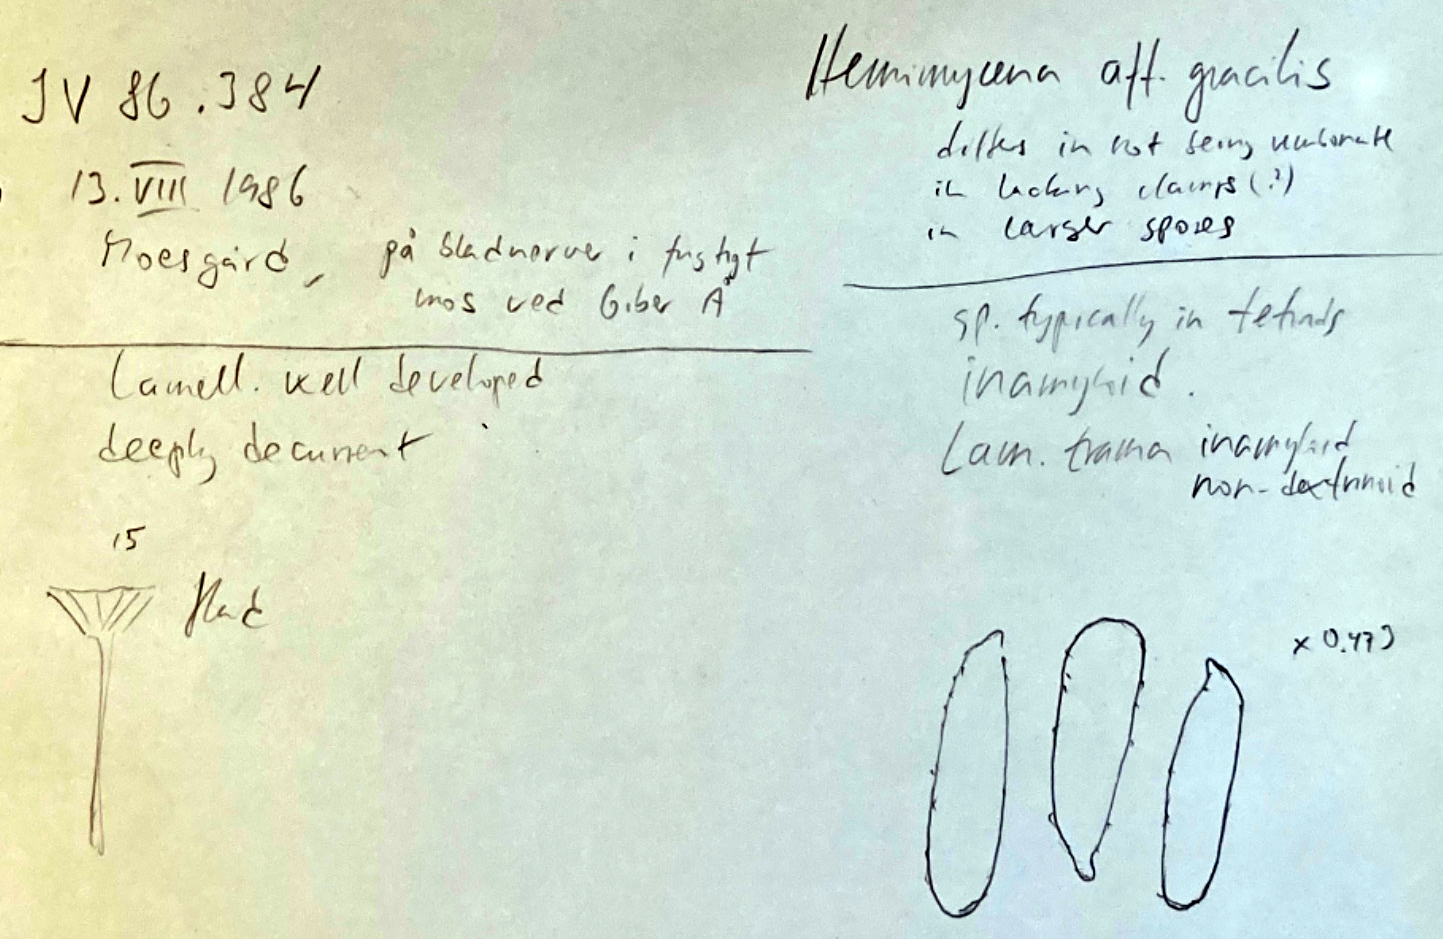 JV 86.384
13. VIII 1986
Moesgård, på bladnerver i fugtigt
mos ved Giber Å
Lamell. well developed
deeply decurrent
15
flad
Hemimycena aff. gracilis
differs in not being umbonate
in lacking clamps (?)
in larger spores
sp. typically in tetrads
inamyloid.
Lam. trama inamyloid
non-dextrinoid
x 0.473